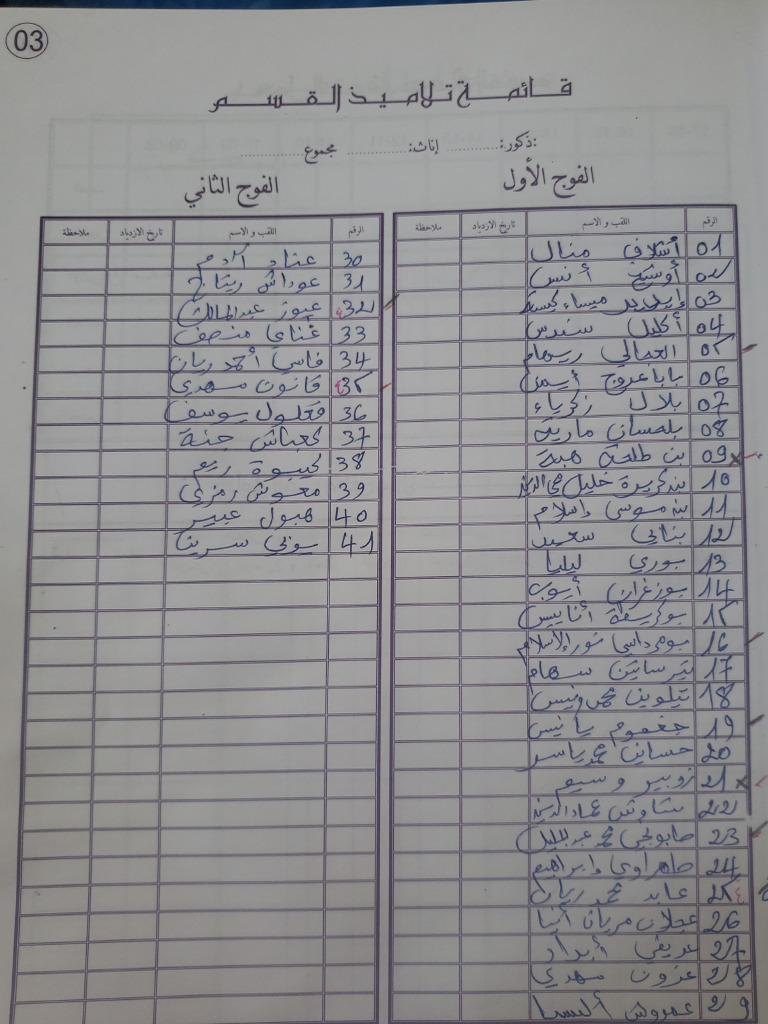 03
قائمة تلاميذ القسم
ذكور: ............ إناث: ............ مجموع ............
الفوج الأول
الرقم اللقب و الاسم تاريخ الازدياد ملاحظة
01 منال
02 أنس
03 ميساء
04 أكليل سندس
05 العمالي ريهام
06 باباعروج أيمن
07 بلال زكرياء
08 بلمساني مارية
09 بن طلحة هبة
10 خليل محي الدين
11 بن موسى إسلام
12 بناني سعيد
13 بوري ليليا
14 بوزغران أيوب
15 بوكريطة أناييس
16 بومرداسي نور الإسلام
17 تيرساتين سهام
18 تيلوين محمد ونيس
19 جغموم يانيس
20 حساين محمد ياسر
21 زوبير وسيم
22 شاوش عماد الدين
23 صابونجي محمد عبد الجليل
24 طهراوي إبراهيم
25 عابد محمد ريان
26 عجلان مريان أنيا
27 عريقي
28 عزون مهدي
29 عمروش أليسيا
الفوج الثاني
الرقم اللقب و الاسم تاريخ الازدياد ملاحظة
30 عناد آدم
31 عوداش ريتاج
32 عيوز عبد المالك
33 غناي منصف
34 فاسي أحمد ريان
35 قانون مهدي
36 قعلول يوسف
37 كعباش جنة
38 كيبوة ريم
39 معوش رمزي
40 هبول عبير
41 يونجي سرين